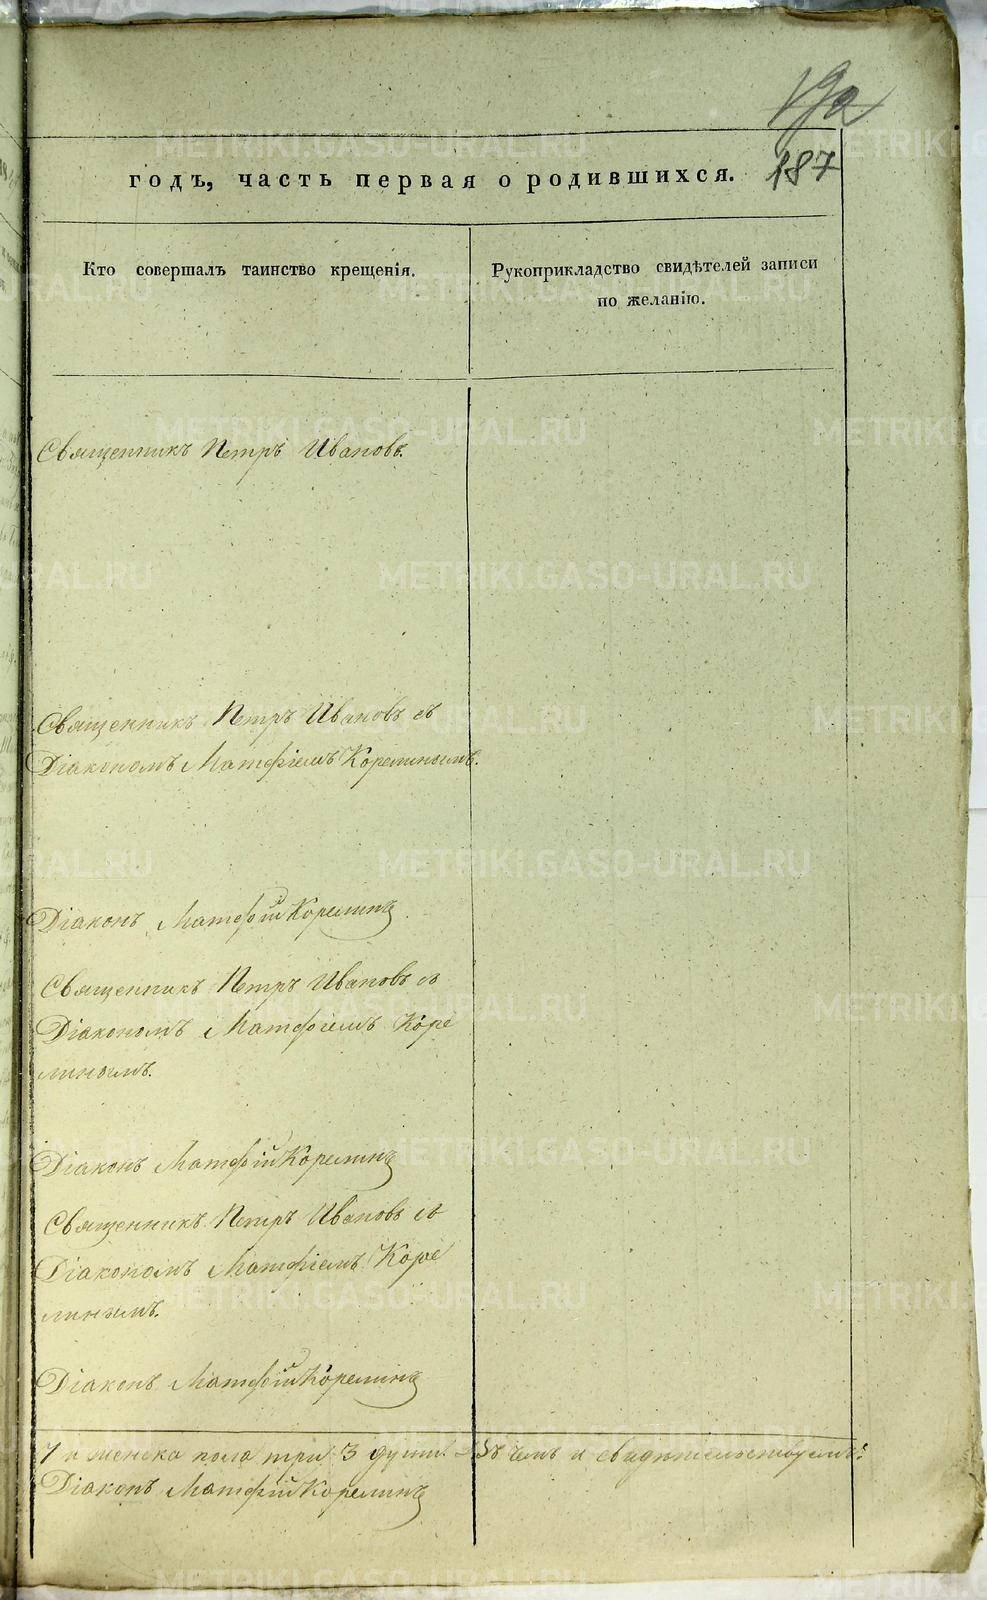 187
годъ, часть первая о родившихся.
Кто совершалъ таинство крещенія.
Рукоприкладство свидѣтелей записи
по желанію.
Священникъ Петръ Ивановъ.
Священникъ Петръ Ивановъ съ
Діакономъ Матфіемъ Корелинымъ.
Діаконъ Матфій Корелинъ
Священникъ Петръ Ивановъ съ
Діакономъ Матфіемъ Коре
линымъ.
Діаконъ Матфій Корелинъ
Священникъ Петръ Ивановъ съ
Діакономъ Матфіемъ Коре
линымъ.
Діаконъ Матфій Корелинъ
7 и женска пола три 3 души. Въ чемъ и свидѣтельствуемъ:
Діаконъ Матфій Корелинъ
METRIKI.GASO-URAL.RU